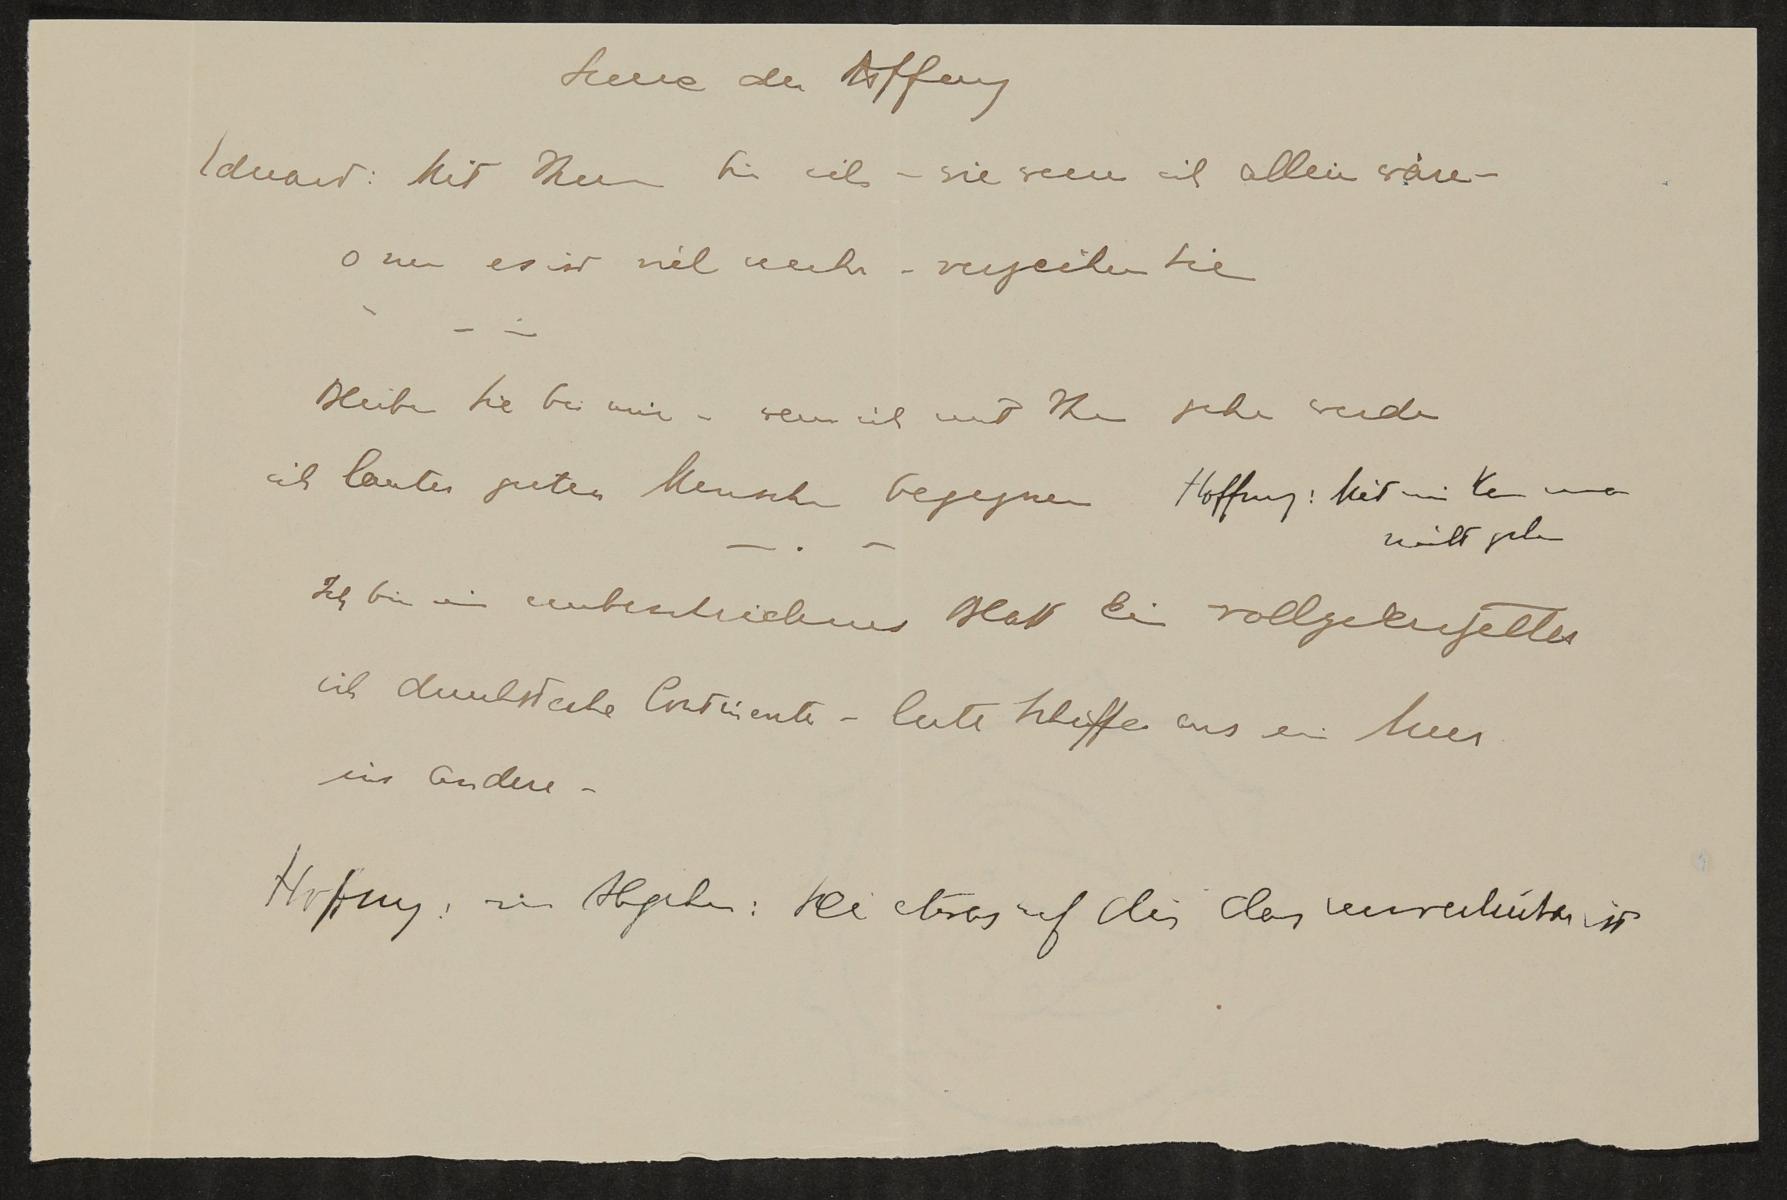 Scene der Hoffnung
Eduard: Mit Ihnen bin ich – wie wenn ich allein wäre –
o nein es ist viel mehr – verzeihen Sie
– –
Bleiben Sie bei mir – wenn ich mit Ihnen gehe werde
ich lauter guten Menschen begegnen
Hoffnung: Mit mir kann man
nicht gehn
– . –
Ich bin ein unbeschriebenes Blatt Ein vollgekritzeltes
ich Continente – Schiffe aus ein Meer
ins andere –
Hoffnung: im Abgehen: etwas auf dir das ist